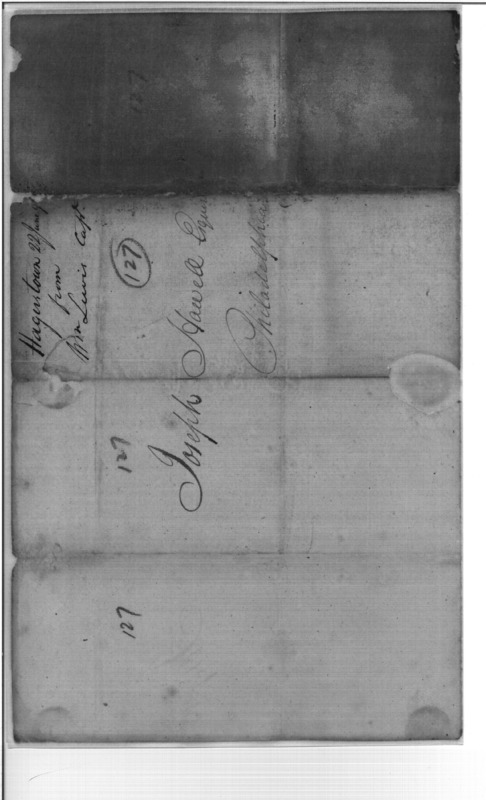 127
Hagerstown 22 June
from
Wm Lewis Capt
127
Joseph Howell Esqui
Philadelphia
127
127